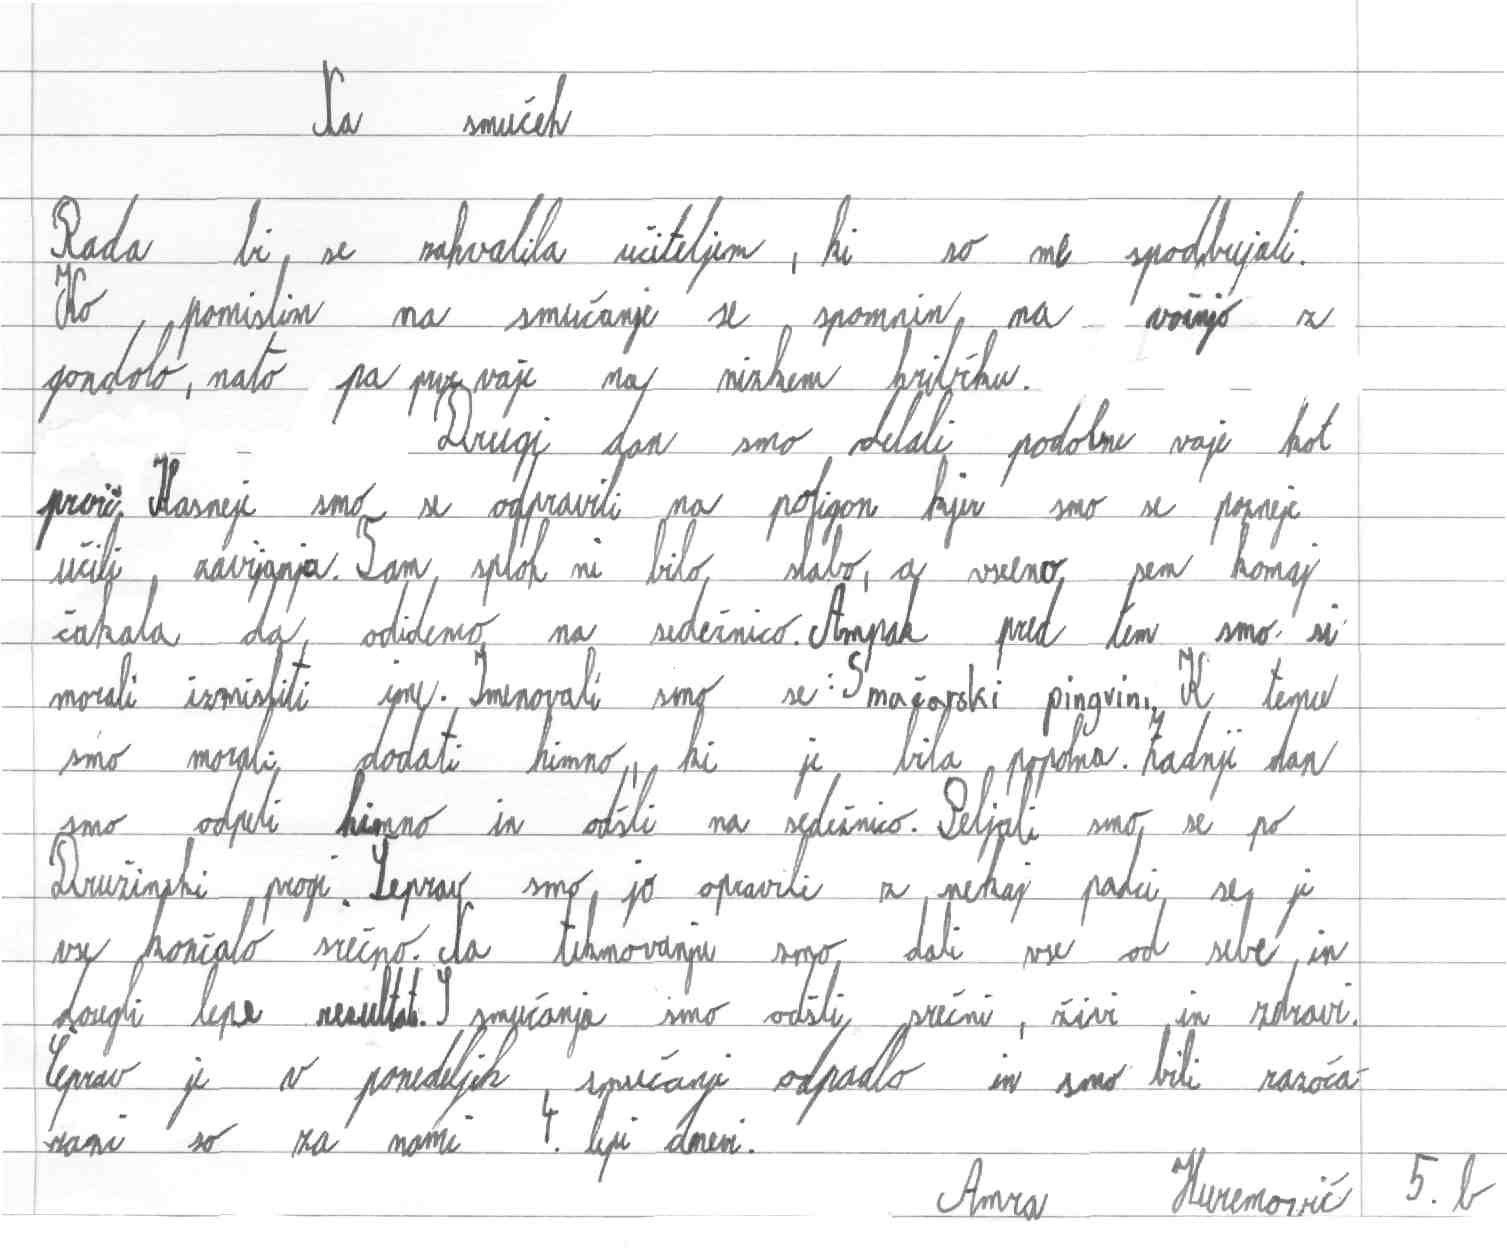 Na smučeh
Rada bi se zahvalila učiteljem, ki so me spodbujali.
Ko pomislim na smučanje se spomnin na vožnjo z
gondolo, nato pa prve vaje na nizkem hribčku.
Drugi dan smo delali podobne vaje kot
prvič. Kasneje smo se odpravili na poligon kjer smo se pozneje
učili zavijanja. Tam sploh ni bilo slabo, a vseeno sem komaj
čakala da odidemo na sedežnico. Ampak pred tem smo si
morali izmisliti ime. Imenovali smo se: Smačarski pingvini. K temu
smo morali dodati himno, ki je bila popolna. Zadnji dan
smo odpeli himno in odšli na sedežnico. Peljali smo se po
Družinski progi. Čeprav smo jo opravili z nekaj padci se je
vse končalo srečno. Na tekmovanju smo dali vse od sebe in
dosegli lepe rezultate. S smučanja smo odšli srečni, živi in zdravi.
Čeprav je v ponedeljek smučanje odpadlo in smo bili razoča-
rani so za nami 4. lepi dnevi.
Amra Huremović 5. b